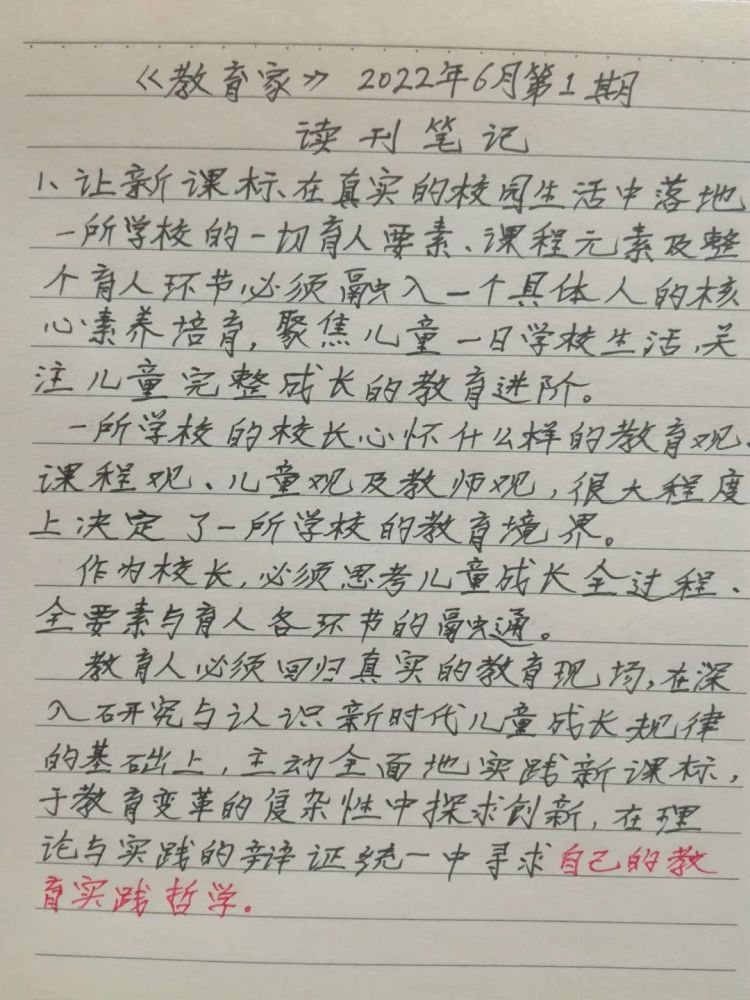 《教育家》2022年6月第1期
读刊笔记
1、让新课标在真实的校园生活中落地
一所学校的一切育人要素、课程元素及整
个育人环节必须融入一个具体人的核
心素养培育，聚焦儿童一日学校生活，关
注儿童完整成长的教育进阶。
一所学校的校长心怀什么样的教育观、
课程观、儿童观及教师观，很大程度
上决定了一所学校的教育境界。
作为校长，必须思考儿童成长全过程、
全要素与育人各环节的融通。
教育人必须回归真实的教育现场，在深
入研究与认识新时代儿童成长规律
的基础上，主动全面地实践新课标，
于教育变革的复杂性中探求创新，在理
论与实践的辩证统一中寻求自己的教
育实践哲学。